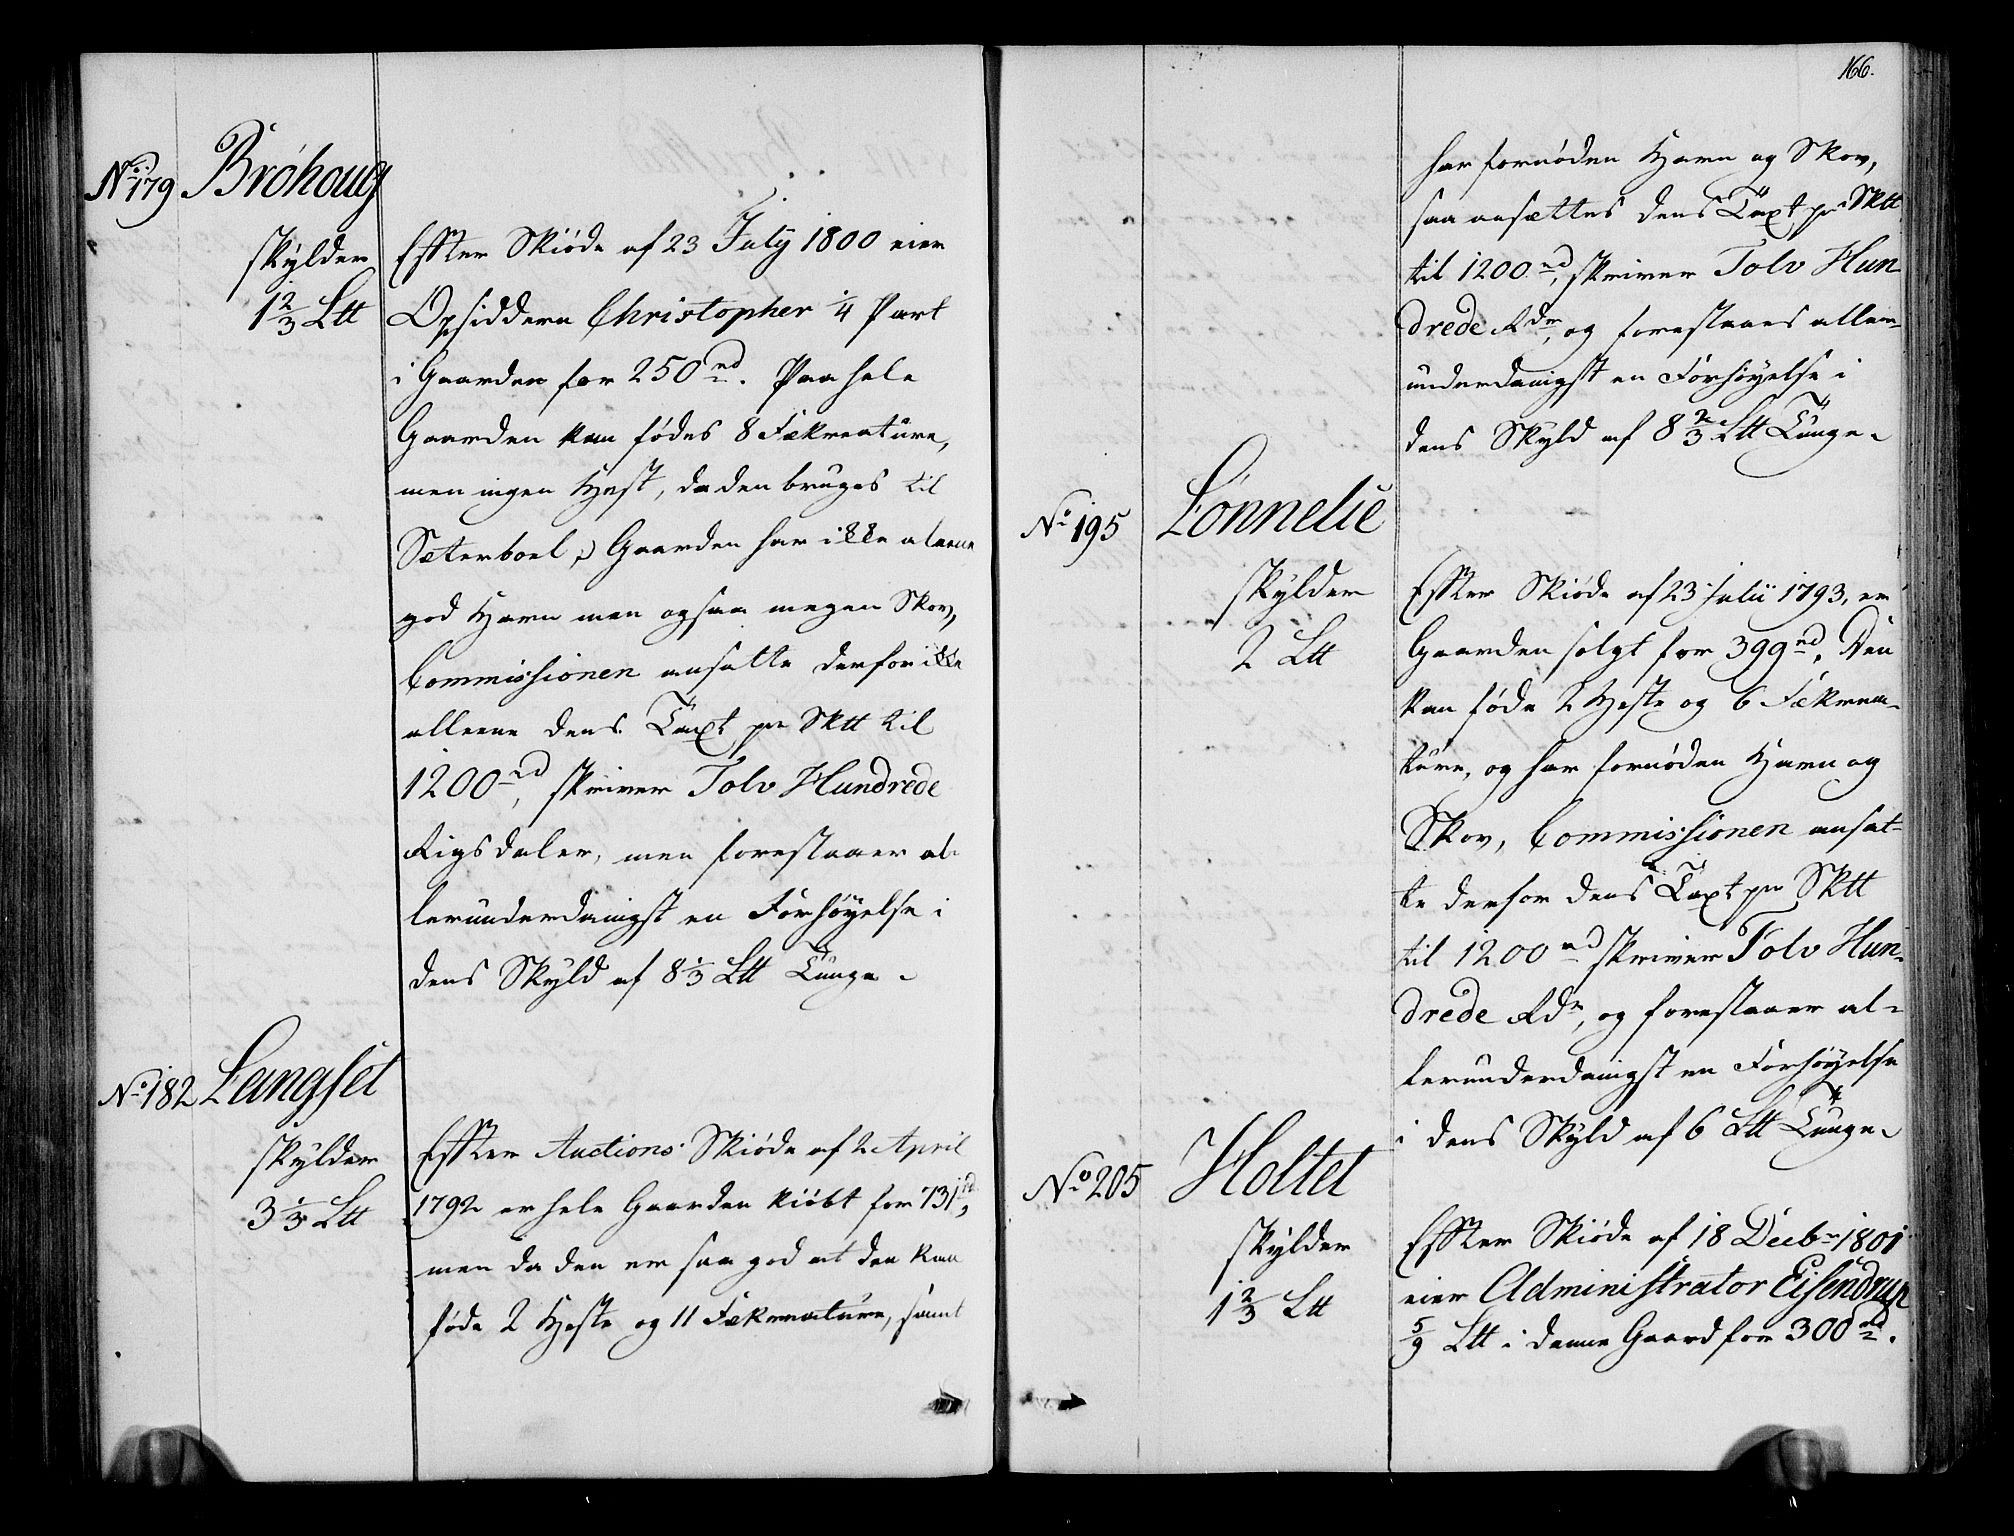 No 179 Bröhoug
skylder
1 2/3 Ltt
Effter Skiöde af 23 July 1800 eier
Opsiddern Christopher 1/4 Part
i Gaarden for 250 rd. Paa hele
Gaarden kan fødes 8 Fækreature,
men ingen Hest, da den bruges til
Sæterboel, Gaarden har ikke aleene
god Havn men ogsaa megen Skov,
Commissionen ansatte derfor ikke
alleene dens Taxt pr Sktt til
1200 rd, skriver Tolv Hundrede
Rigsdaler, men forestaaer al-
lerunderdanigst en Forhöyelse i
dens Skyld af 8 1/3 Ltt Tunge.
No 182 Langset
skylder
3 1/3 Ltt
Effter Auctions Skiöde af 2 April
1792 er hele Gaarden kiöbt for 731 rd,
men da den er saa god at den kan
føde 2 Heste og 11 Fækreature, samt
166.
har fornøden Havn og Skov,
saa ansættes dens Taxt pr Sktt
til 1200 rd, skriver Tolv Hun-
drede Rdr, og forestaaes aller-
underdanigst en Forhöyelse i
dens Skyld af 8 2/3 Ltt Tunge.
No 195 Lönnelie
skylder
2 Ltt
Effter Skiöde af 23 Julii 1793, er
Gaarden solgt for 399 rd. Den
kan føde 2 Heste og 6 Fækrea-
ture, og har fornøden Havn og
Skov, Commissionen ansat-
te derfor dens Taxt pr Sktt
til 1200 rd skriver Tolv Hun-
drede Rdr, og forestaaer al-
lerunderdanigst en Forhöyelse
i dens Skyld af 6 Ltt Tunge.
No 205 Holtet
skylder
1 2/3 Ltt
Effter Skiöde af 18 Decbr 1801
eier Administrator Eisendrup
5/9 Ltt i denne Gaard for 300 rd.